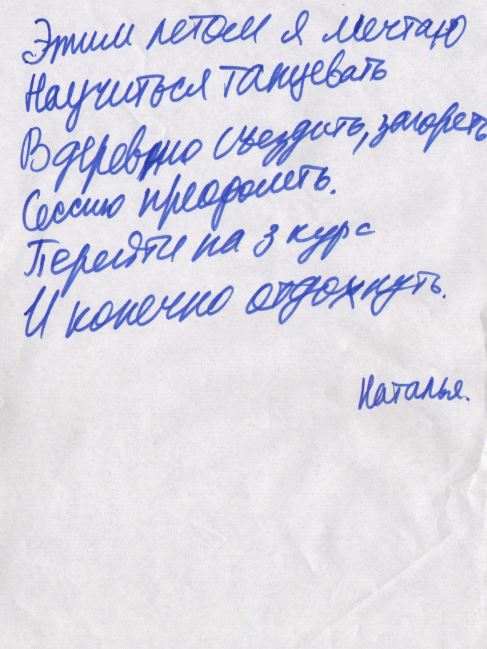 Этим летом я мечтаю
Научиться танцевать
В деревню съездить, загореть
Сессию преодолеть.
Перейти на 3 курс
И конечно отдохнуть.
Наталья.